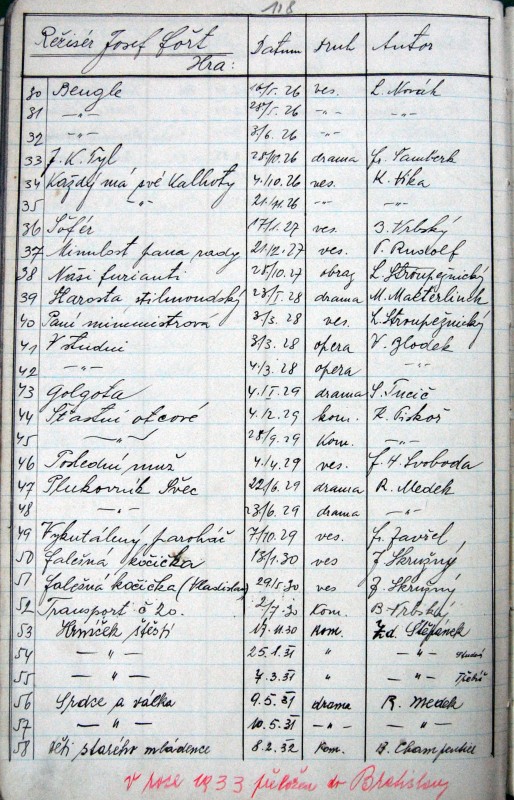 118
Režisér Josef Fořt Datum Druh Autor
Hra:
30 Bengle 16/5. 26 ves. L. Novák
31 —„— 28/5. 26 —„— —„—
32 —„— 3/6. 26 —„—
33 J. K. Tyl 28/10. 26 drama Fr. Šamberk
34 Každý má své Kalhoty 4./10. 26 ves. K. Fika
35 —„— 21/11. 26 —„— —„—
36 Šofér 17/1. 27 ves. B. Vrbský
37 Minulost pana rady 21/2. 27 ves. T. Rudolf
38 Naši furianti 28/10. 27 obraz L. Stroupežnický
39 Starosta stilmondský 23/I. 28 drama M. Maeterlinck
40 Paní minmistrová 3/3. 28 ves. L. Stroupežnický
41 V studni 3/3. 28 opera V. Blodek
42 —„— 4/3. 28 opera —„—
43 Golgota 4./I. 29 drama S. Tucič
44 Šťastní otcové 4./2. 29 kom. K. Piskoř
45 —„— 28/9. 29 Kom. —„—
46 Poslední muž 4./4. 29 ves. F. X. Svoboda
47 Plukovník Švec 22/6. 29 drama R. Medek
48 —„— 23/6. 29 drama —„—
49 Vykutálený paroháč 7/10. 29 ves. Fr. Zavřel
50 Falešná kočička 13/1. 30 ves J. Skružný
51 Falešná kočička (Vladislav) 29/5. 30 ves J. Skružný
52 Transport č 20. 2/7. 30 Kom. B Vrbský
53 Hrníček štěstí 17. 11. 30 Kom. Zd. Štěpánek
54 —„— 25. 1. 31 „ —„—
55 —„— 7. 3. 31 „ —„— Třebíč
56 Srdce a válka 9. 5. 31 drama R. Medek
57 —„— 10. 5. 31 —„— —„—
58 Děti starého mládence 8. 2. 32 Kom. B. Champentier
v roce 1933 přeložen do Bratislavy